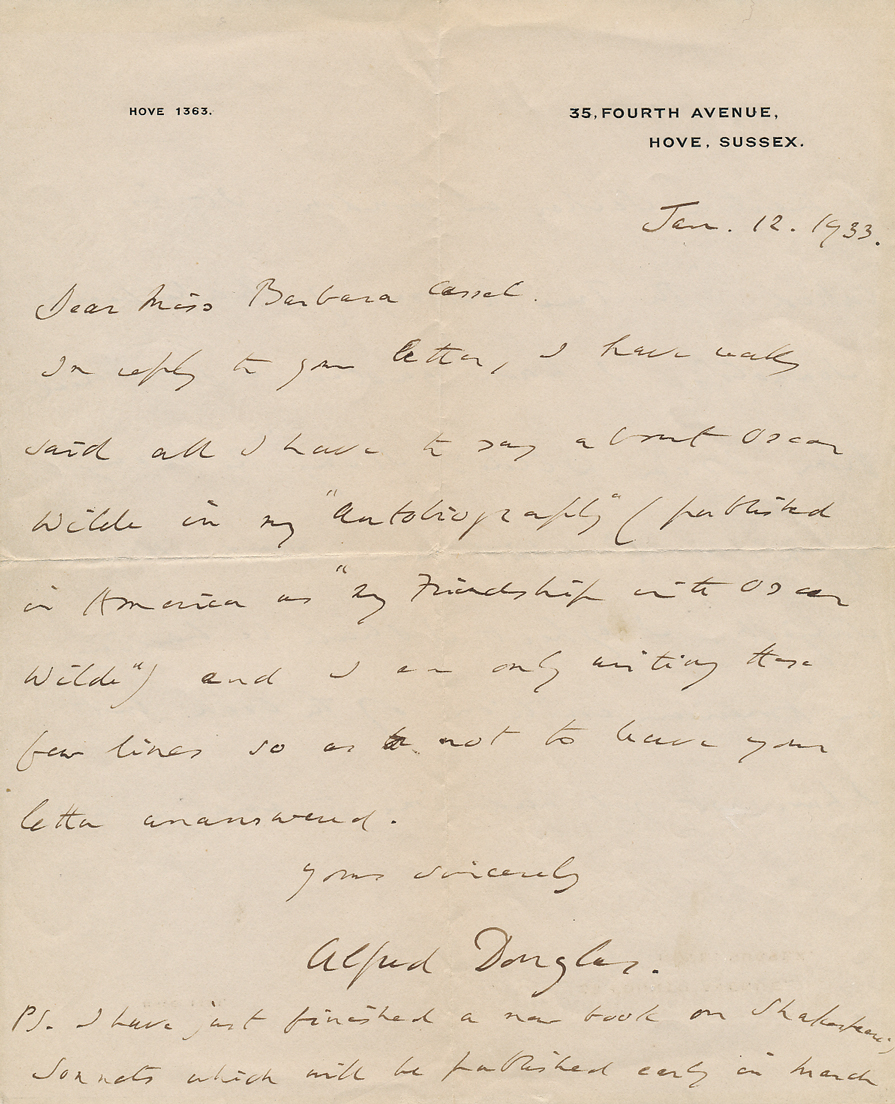 HOVE 1363.
35, FOURTH AVENUE,
HOVE, SUSSEX.
Jan. 12. 1933.
Dear Miss Barbara Cassel.
In reply to your letter, I have really
said all I have to say about Oscar
Wilde in my "Autobiography" (published
in America as "My Friendship with Oscar
Wilde") and I am only writing these
few lines so as not to leave your
letter unanswered.
Yours sincerely
Alfred Douglas.
PS. I have just finished a new book on Shakespeare's
Sonnets which will be published early in March